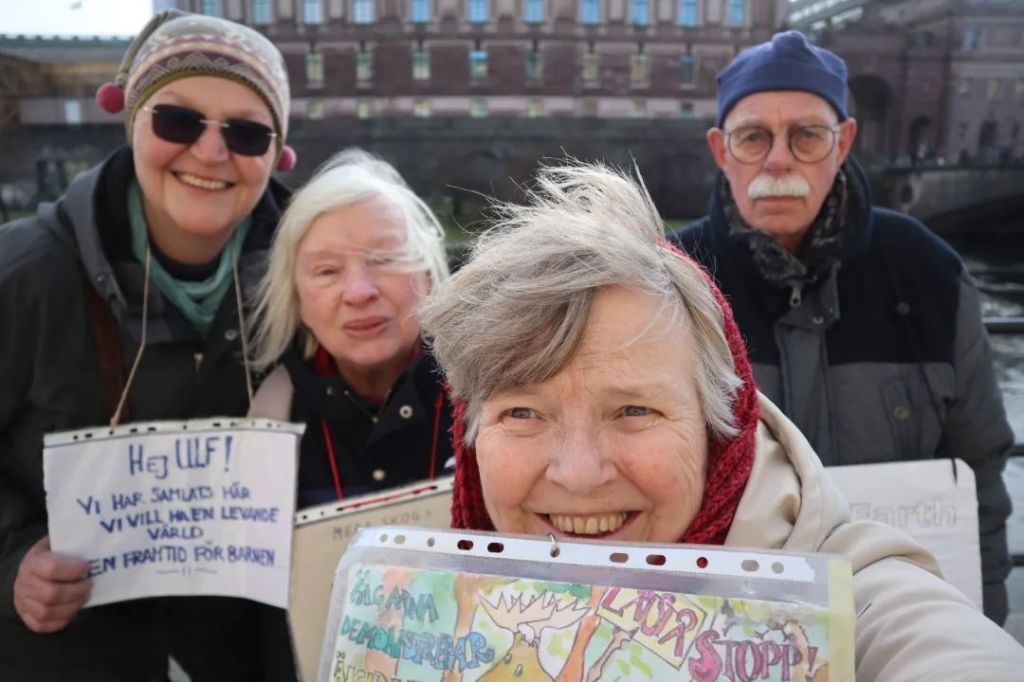 HEJ ULF!
VI HAR SAMLATS HÄR
VI VILL HA EN LEVANDE
VÄRLD
EN FRAMTID FÖR BARNEN
MERA SKOG
ÄLGARNA
DEMONSTRERAR
STOPP!
Earth